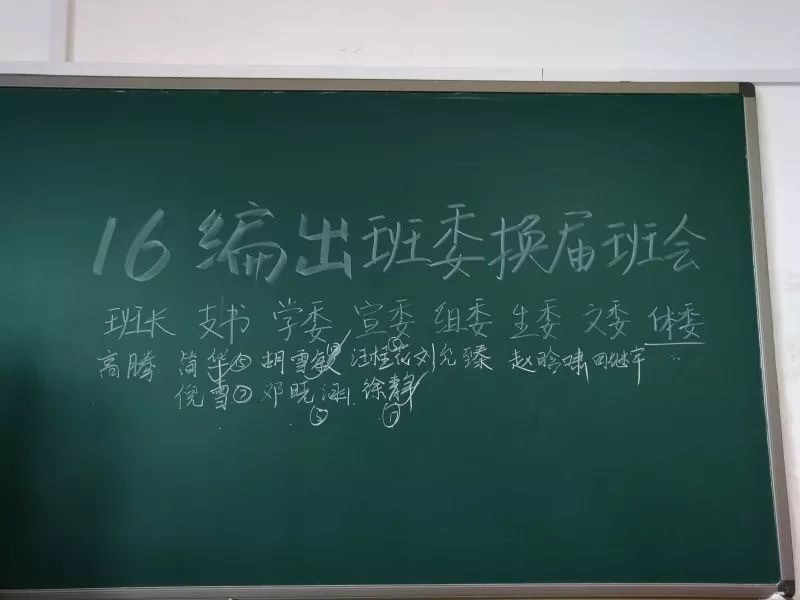 16编出班委换届班会
班长 支书 学委 宣委 组委 生委 文委 体委
高腾 简华 胡雪敏 汪桂花 刘允臻 赵晗啸 田继宇
倪雪 邓晓涵 徐静